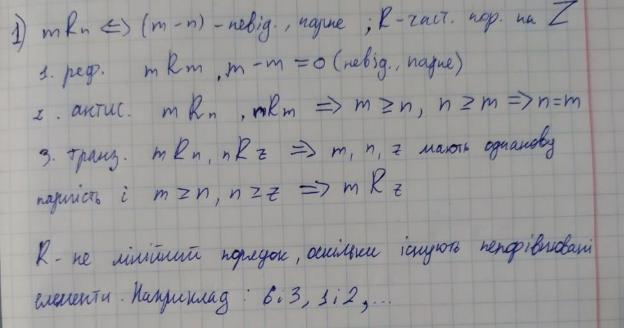 1) mRn <=> (m-n) - невід., парне ; R-част. пор. на Z
1. реф. mRm, m-m=0 (невід., парне)
2. антис. mRn, nRm => m≥n, n≥m => n=m
3. транз. mRn, nRz => m, n, z мають однакову
парність і m≥n, n≥z => mRz
R- не лінійний порядок, оскільки існують непорівнювані
елементи. Наприклад: 6 і 3, 1 і 2, ...